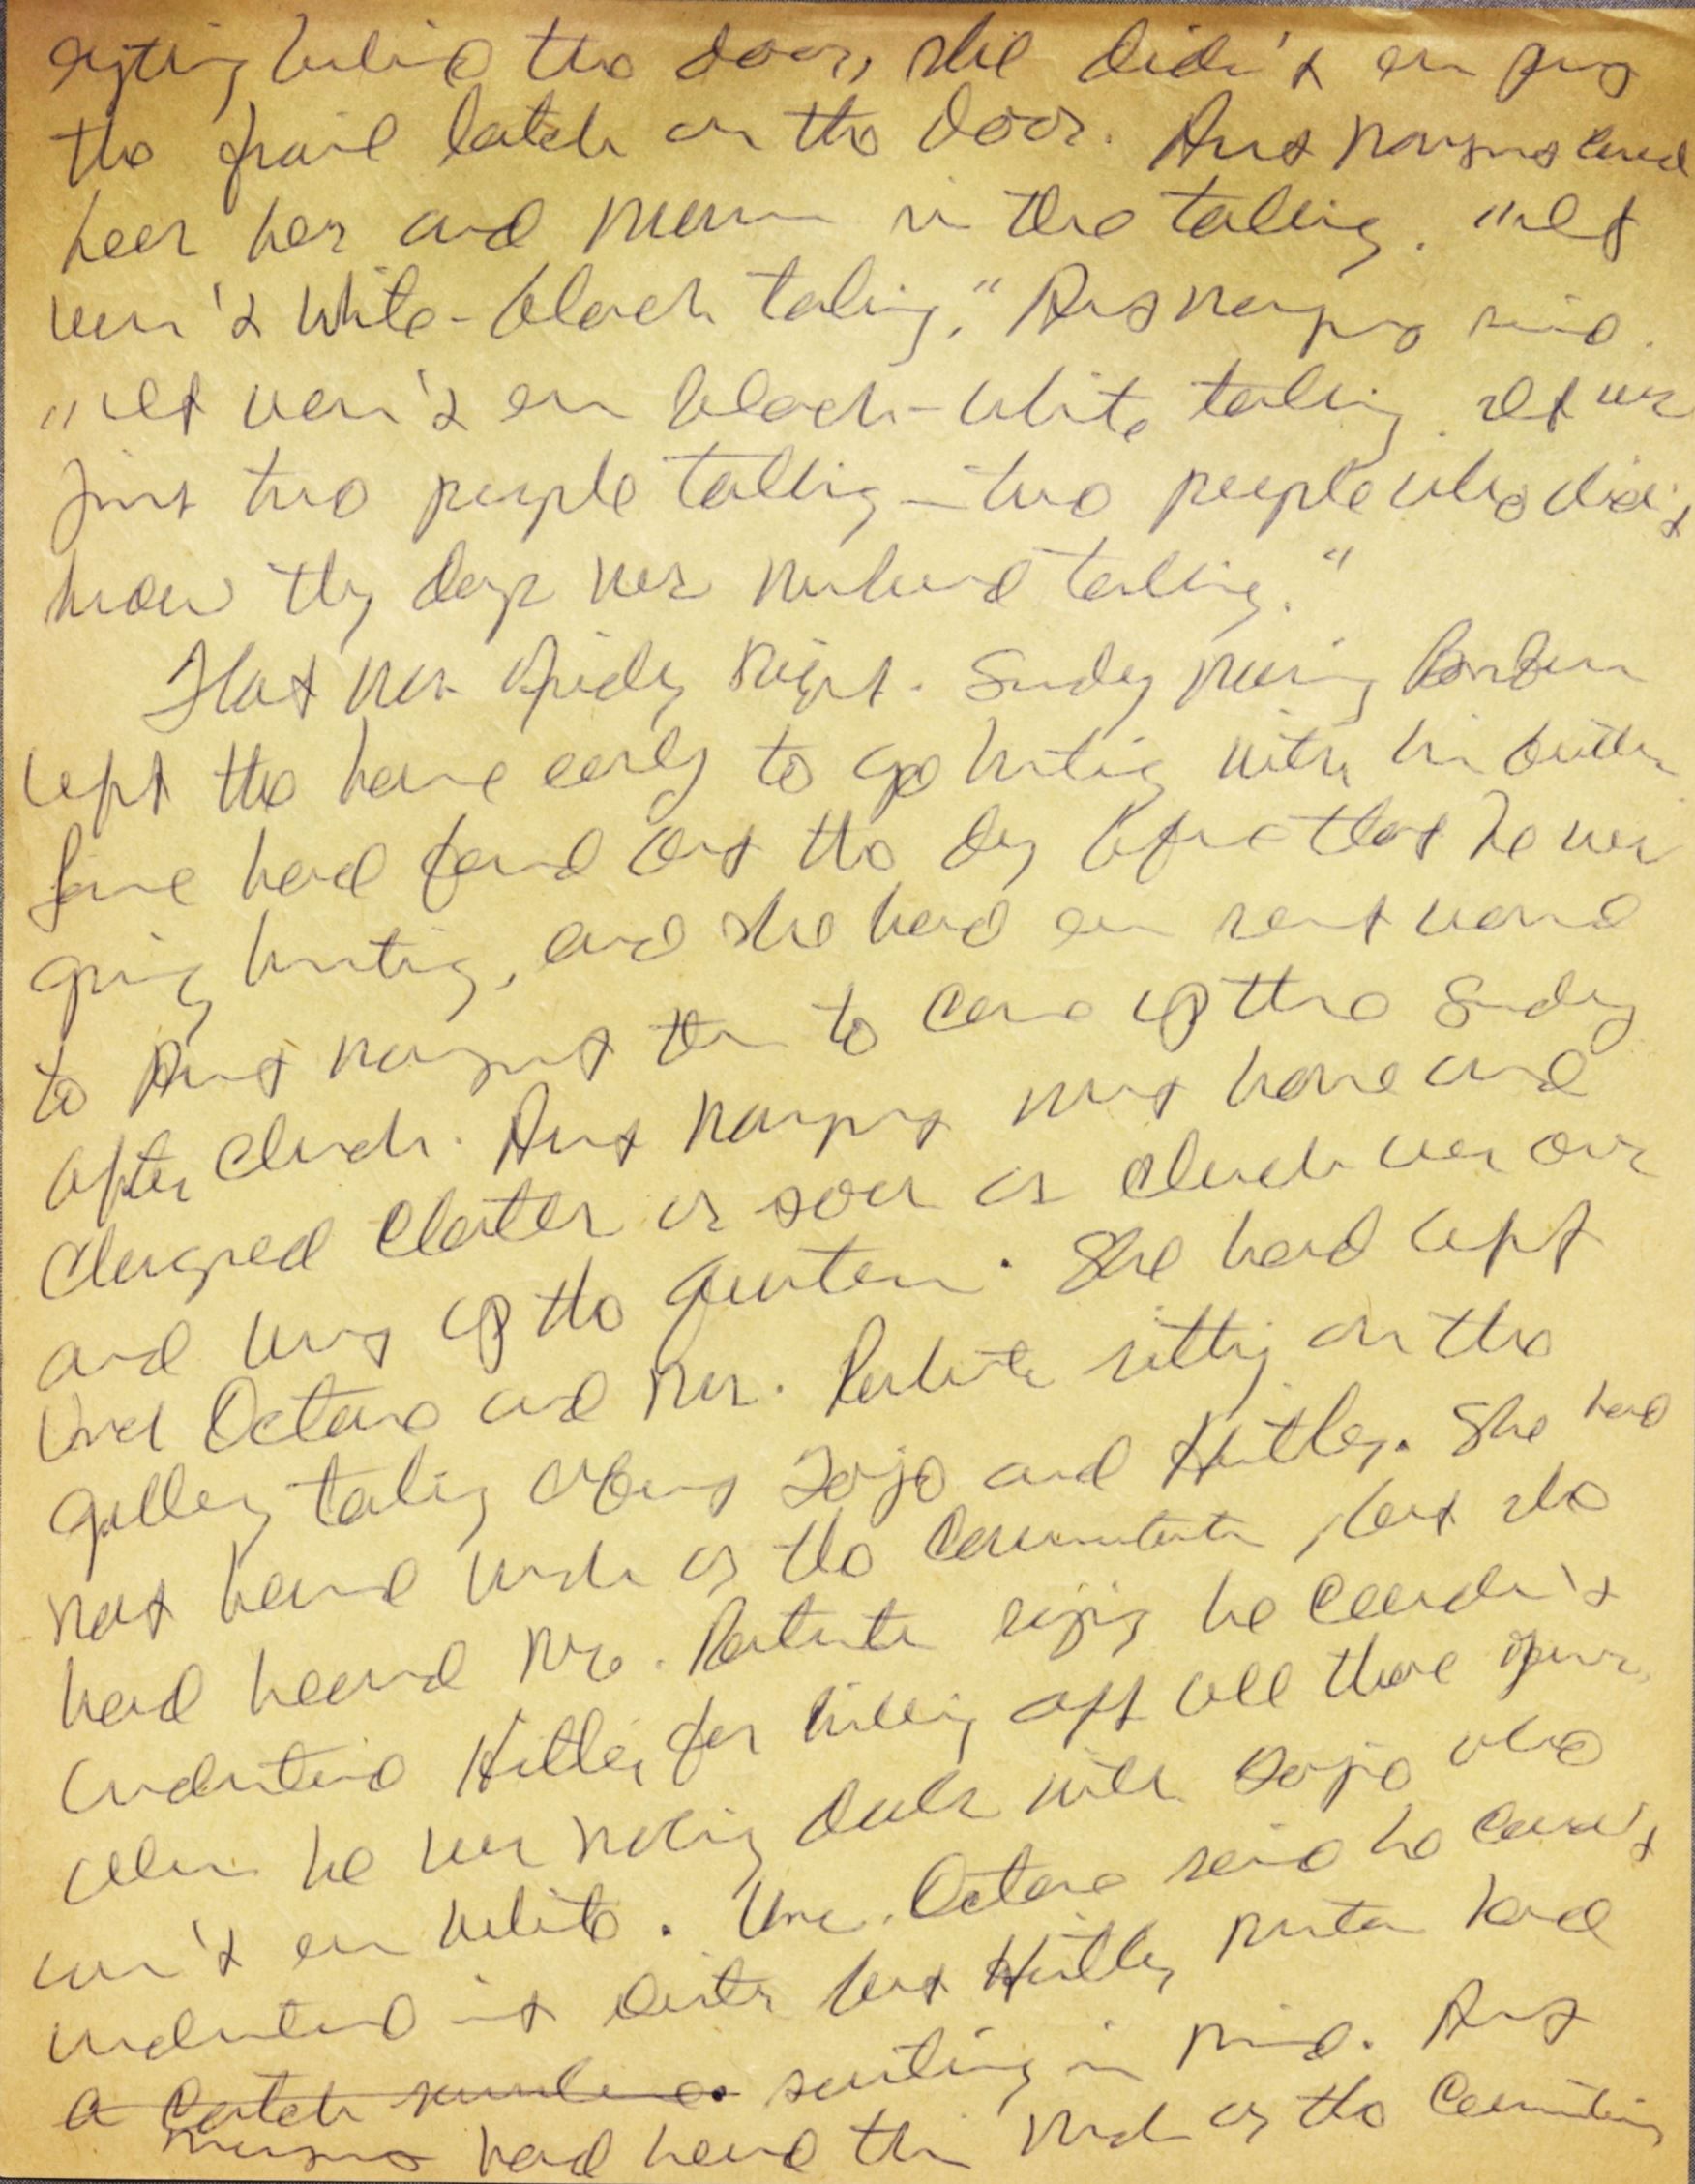 sitting behind the door, she didn't even put
the frail latch on the door. Aunt Margaret could
hear her and Marcus in there talking. "It
wasn't white-black talking," Aunt Margaret said.
"It wasn't even black-white talking. It was
just two people talking — two people who didn't
know they days was numbered talking."
That was Friday night. Sunday morning Bonbon
left the house early to go hunting with his brothers.
had found out the day before that he was
going hunting, and she had even sent word
to Aunt Margaret then to come up there Sunday
after church. Aunt Margaret went home and
changed clothes as soon as church was over
and went up the quarters. She had left
Unc Octave and Mr. sitting on the
gallery talking about Tojo and Hitler. She had
not heard much of the conversation, but she
had heard Mr. saying he couldn't
understand Hitler for killing off all those
when he was making deals with Tojo who
wasn't even white. Unc. Octave said he couldn't
understand it either but Hitler must have had
a catch somewhere. something in mind. Aunt
Margaret had heard this much of the conversation